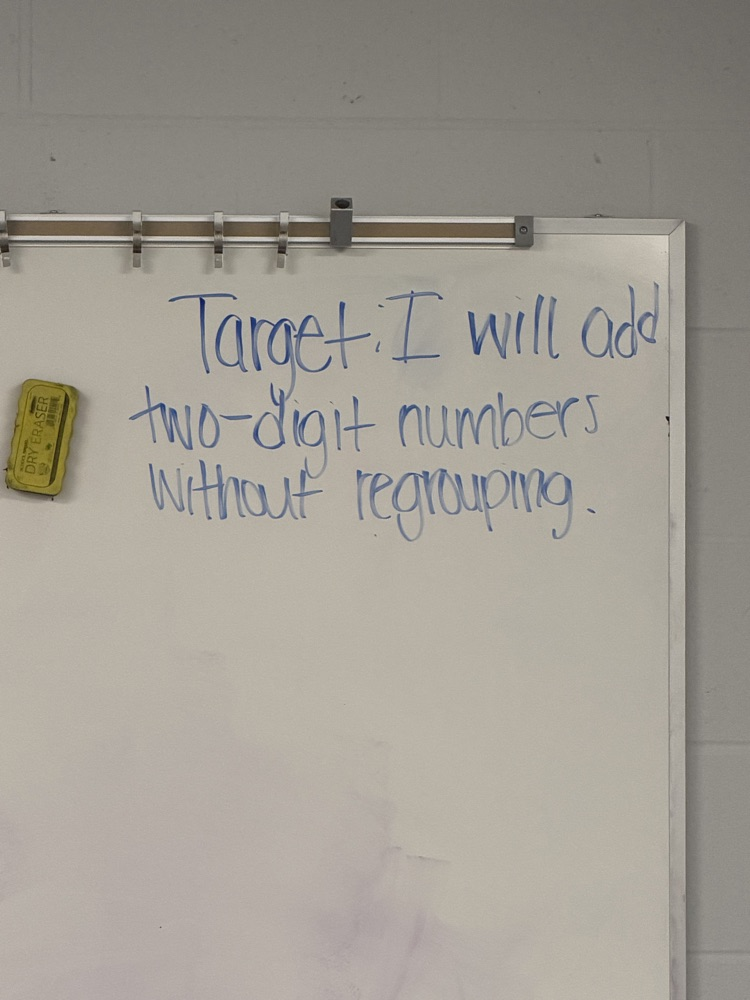 Target: I will add
two-digit numbers
without regrouping.
DRY ERASER